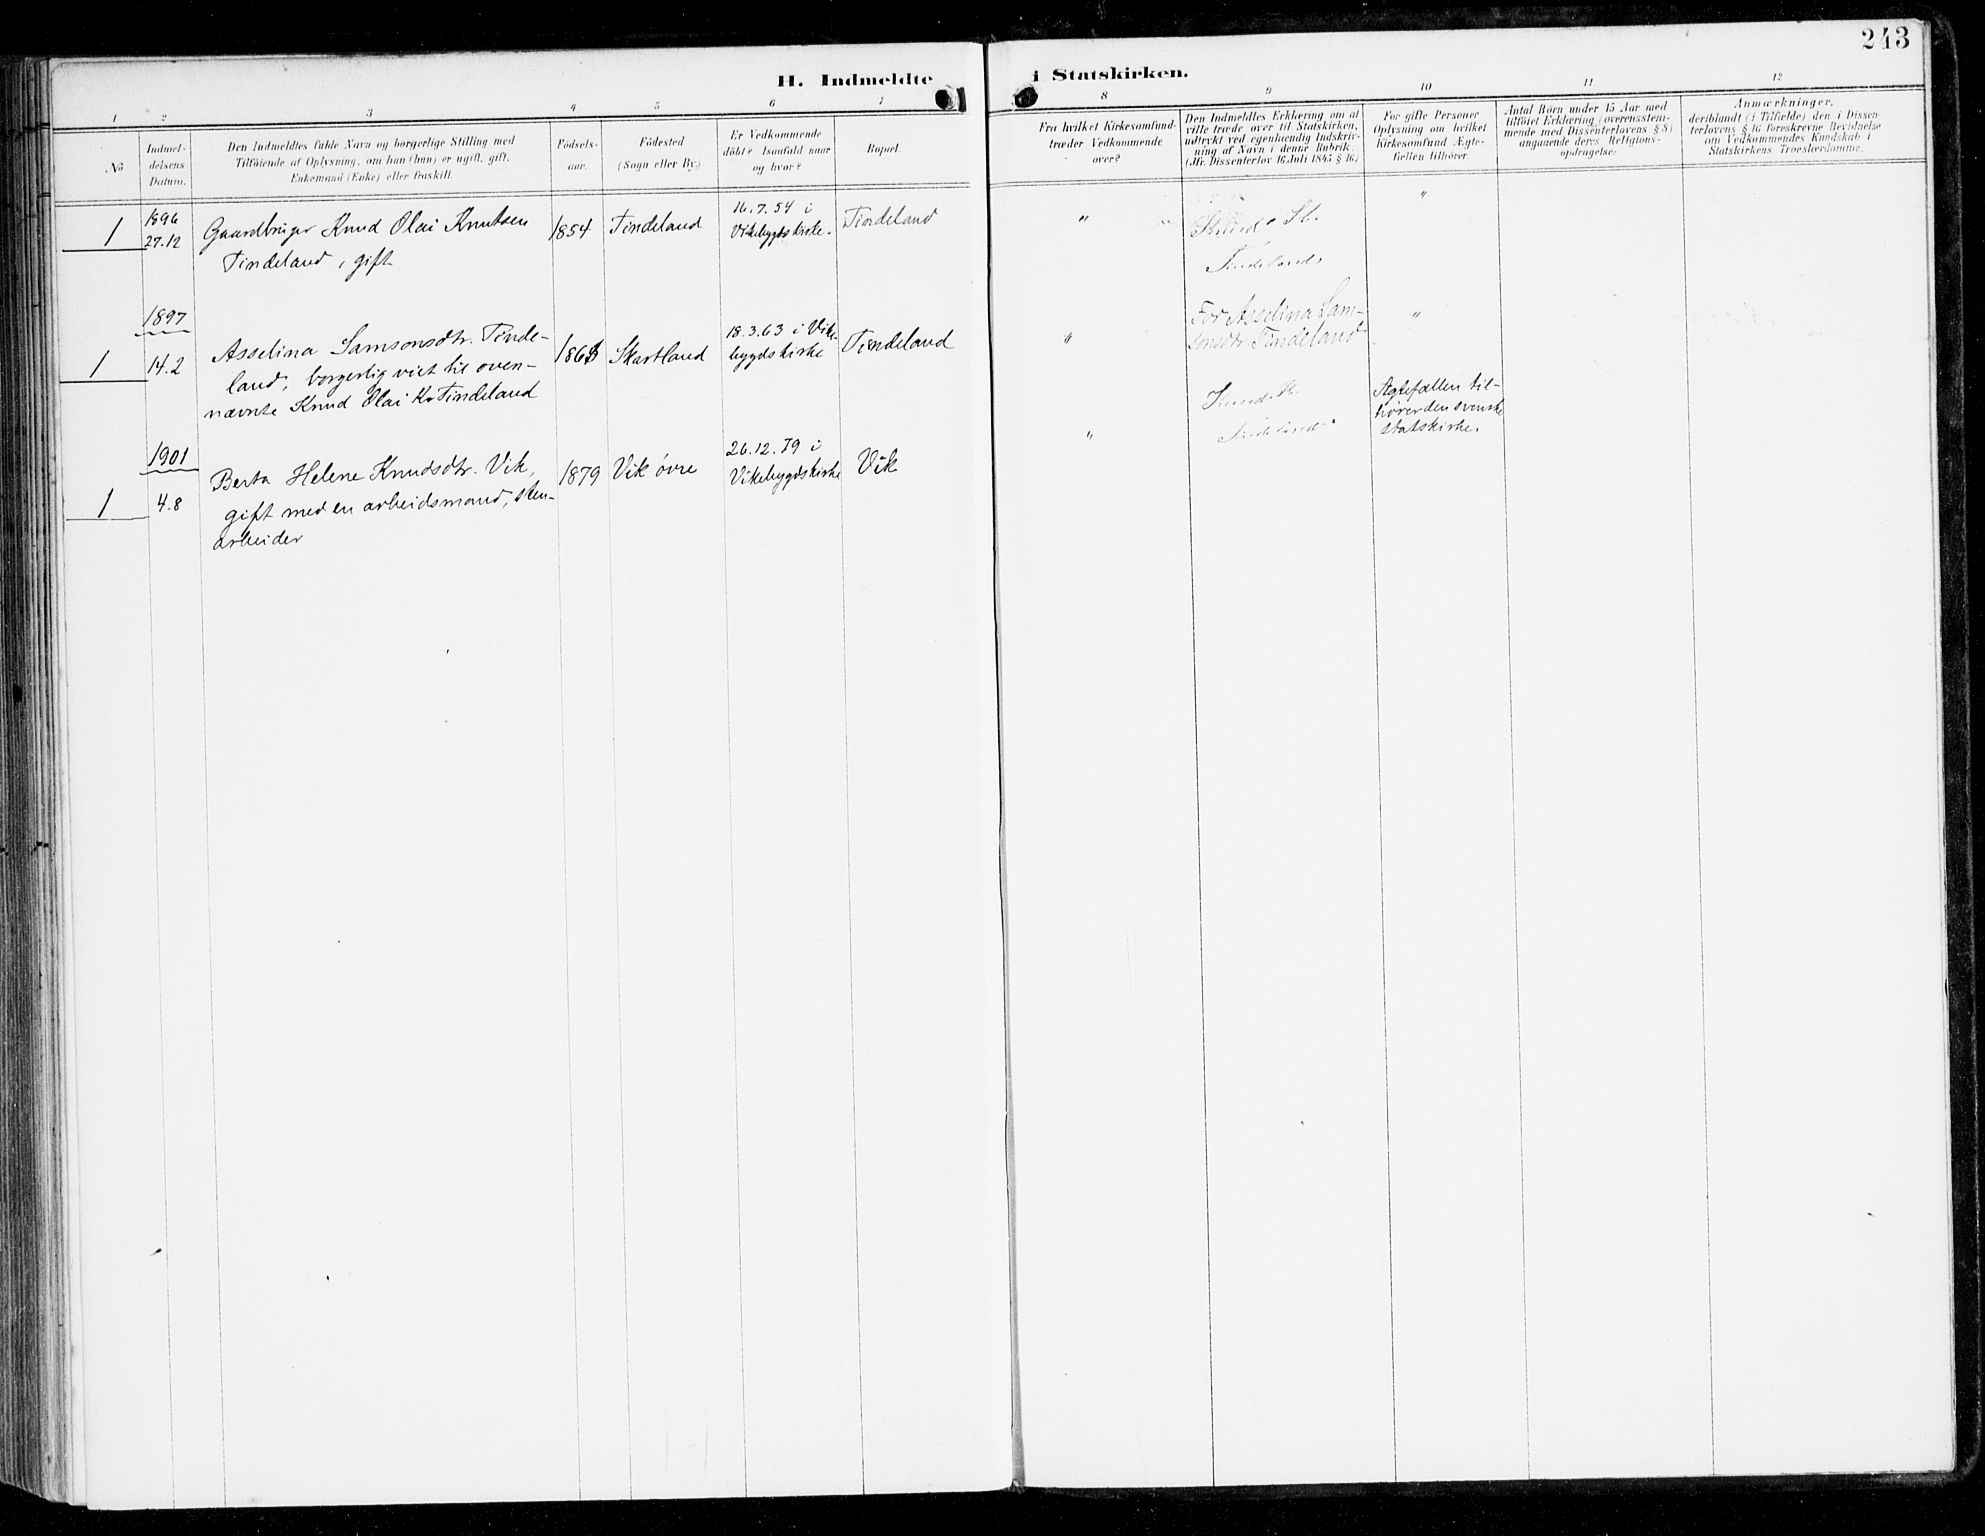 243
H. Indmeldte i Statskirken.
1 2 3 4 5 6 7 8 9 10 11 12
No
Indmel-
delsens
Datum.
Den Indmeldtes fulde Navn og borgerlige Stilling med
Tilföiende af Oplysning, om han (hun) er ugift, gift,
Enkemand (Enke) eller fraskilt.
Födsels-
aar.
Födested
(Sogn eller By.)
Er Vedkommende
döbt? Isaafald naar
og hvor?
Bopæl.
Fra hvilket Kirkesamfund
træder Vedkommende
over?
Den Indmeldtes Erklæring om at
ville træde over til Statskirken,
udtrykt ved egenhændig Indskriv-
ning af Navn i denne Rubrik.
(Jfr. Dissenterlov 16 Juli 1845 § 16.)
For gifte Personer
Oplysning om hvilket
Kirkesamfund Ægte-
fællen tilhörer.
Antal Börn under 15 Aar med
tilföiet Erklæring (overensstem-
mende med Dissenterlovens § 8)
angaaende deres Religions-
opdragelse.
Anmærkninger,
deriblandt (i Tilfælde) den i Dissen-
terlovens § 16 foreskrevne Bevidnelse
om Vedkommendes Kundskab i
Statskirkens Troeslærdomme.
1
1896
27.12
Gaardbruger Knud Olai Knutsen
Tindeland, gift
1854
Tindeland
16.7.54 i
Vikebygds kirke.
Tindeland
"
Knud K.
Tindeland
"
1897
1
14.2
Asselina Samsonsdtr. Tinde-
land, borgerlig viet til oven-
nævnte Knud Olai K. Tindeland
1863
Skartland
18.3.63 i Vike-
bygds kirke
Tindeland
"
For Asselina Sam-
sonsdtr. Tindeland
Knud K.
Tindeland
"
1901
1
4.8
Berta Helene Knudsdtr. Vik,
gift med en arbeidsmand, sten-
arbeider
1879
Vik øvre
26.12.79 i
Vikebygds kirke
Vik
"
Ægtefællen til-
hører den svenske
statskirke.